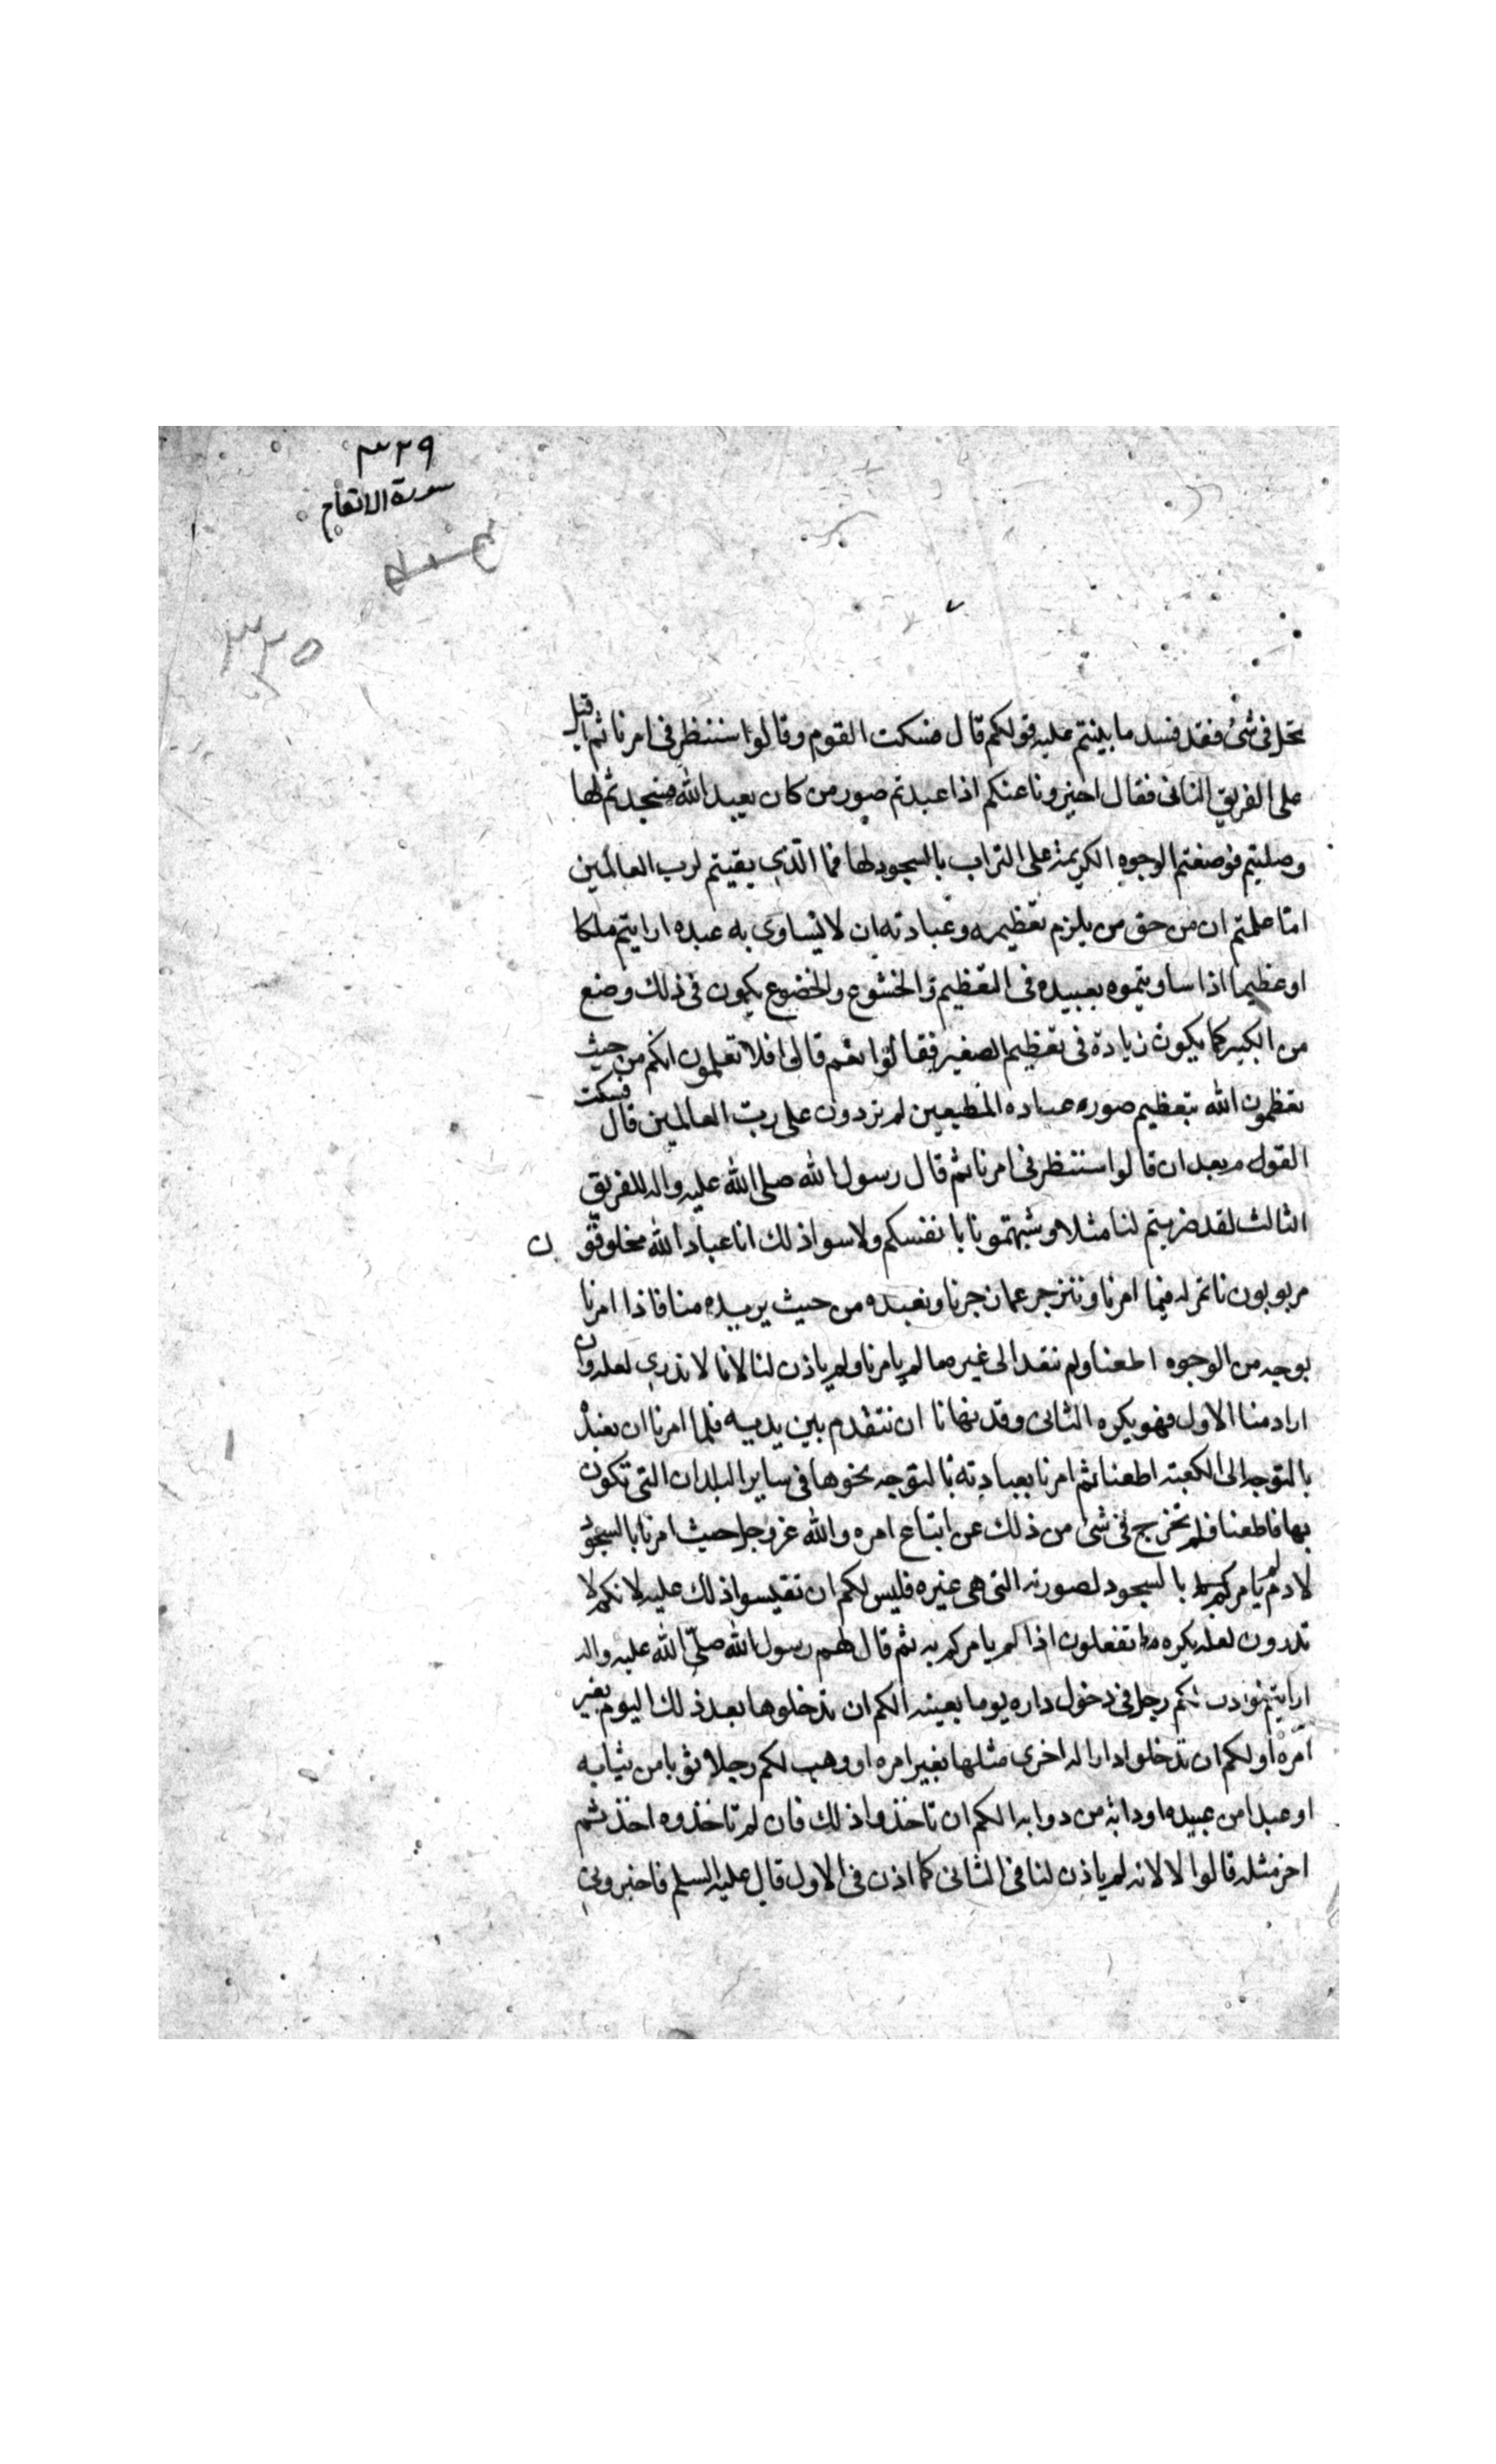 ٣٢٩
سورة الانعام
٣٢٥
يحل فى شئ فقد فسد ما بينتم عليه قولكم قال فسكت القوم وقالوا سننظر فى امرنا ثم اقبل
على الفريق الثانى فقال اخبرونا عنكم اذا عبدتم صور من كان يعبد الله فسجدتم لها
وصليتم فوضعتم الوجوه الكريمة على التراب بالسجود لها فما الّذى بقيتم لرب العالمين
امّا علمتم ان من حق من يلزم تعظيمه وعبادته ان لا يساوى به عبده ارايتم ملكا
او عظيما اذا ساويتموه بعبيده فى التعظيم والخشوع والخضوع يكون فى ذلك وضع
من الكبير كما يكون زيادة فى تعظيم الصغير فقالوا نعم قال افلا تعلمون انكم من حيث
تعظمون الله بتعظيم صوره عباده المطيعين له تزدون على ربّ العالمين قال فسكت
القوم بعد ان قالوا سننظر فى امرنا ثم قال رسول الله صلى الله عليه واله للفريق
الثالث لقد ضربتم لنا مثلا وشبهتمونا بانفسكم ولا سواذلك انا عباد الله مخلوقون
مربوبون ناتمر له فيما امرنا وننزجر عما زجرنا ونعبده من حيث يريده منا فاذا امرنا
بوجه من الوجوه اطعنا ولم نتعد الى غيره مما لم يامرنا ولم ياذن لنا لانا لا ندرى لعله وان
اراد منا الاول فهو يكره الثانى وقد نهانا ان نتقدم بين يديه فلما امرنا ان نعبده
بالتوجه الى الكعبة اطعنا ثم امرنا بعبادته بالتوجه نحوها فى ساير البلدان التى تكون
بها فاطعنا فلم نخرج فى شئ من ذلك عن اتباع امره والله عز وجل حيث امرنا بالسجود
لادم لم يامركم بالسجود لصورته التى هى غيره فليس لكم ان تقيسوا ذلك عليه لانكم لا
تدرون لعله يكره ما تفعلون اذا لم يامركم به ثم قال لهم رسول الله صلّى الله عليه واله
ارايتم لو اذن لكم رجل فى دخول داره يوما بعينه الكم ان تدخلوها بعد ذلك اليوم بغير
امره او لكم ان تدخلوا دارا له اخرى مثلها بغير امره او وهب لكم رجلا ثوبا من ثيابه
او عبدا من عبيده او دابة من دوابه الكم ان تاخذوا ذلك فان لم تاخذوه اخذتم
اخر مثله قالوا لا لانه لم ياذن لنا فى الثانى كما اذن فى الاول قال عليه السلم فاخبرونى